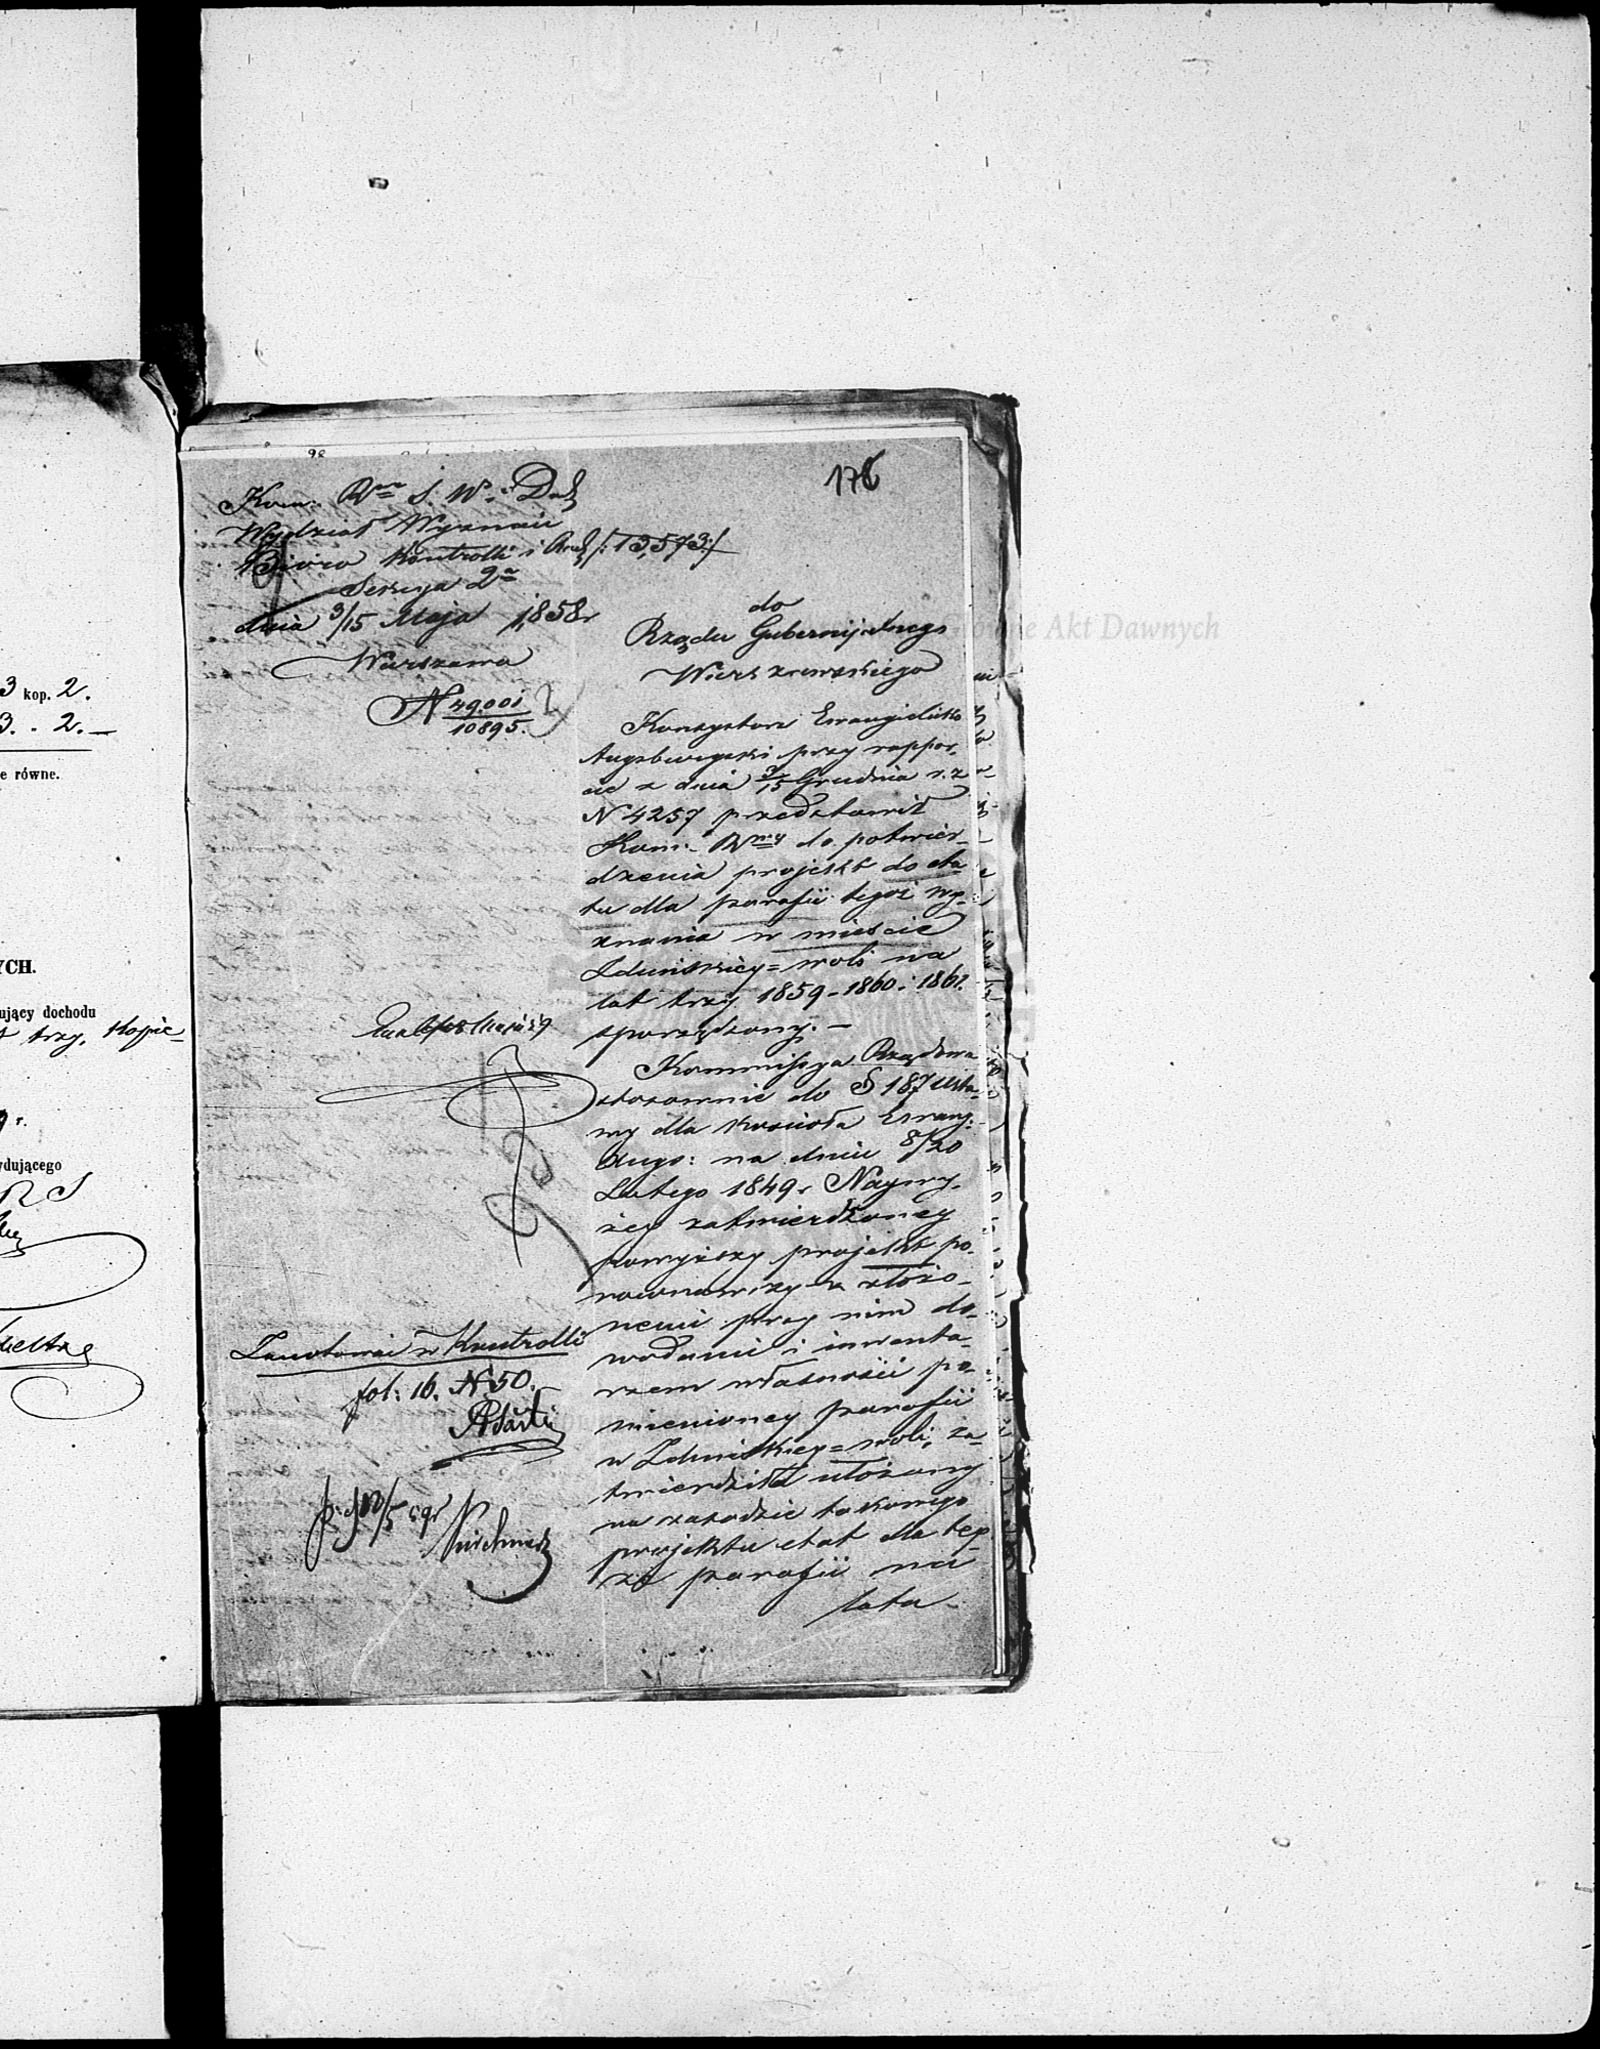 3 kop. 2.
3. . 2. —
e równe.
YCH.
ujący dochodu
trzy, kopie_
9 r.
ydującego
178
Kom. Rwa S. W. i D.
Wydział Wyznań
Biuro Kontrolli i Rach /: 13,573 :/
Sekcya 2a
dnia 3/15 Maja 1858 r
Warszawa
N 49.001
10895.
do
Rządu Gubernijalnego
Warszawskiego
Konsystorz Ewangielicko
Augsburgski przy rappor_
cie z dnia 3/15 Grudnia r. z
N 4257 przedstawił
Kom. Rwey do potwier_
dzenia projekt do eta_
tu dla parafii tegoż wy_
znania w mieście
Zduńskiey=woli na
lat trzy 1859 - 1860 i 1861.
sporządzony. —
Kommissya Rządowa
stosownie do § 187 Usta_
wy dla Kościoła Ewang:
Augs: na dniu 8/20
Lutego 1849 r Naywy_
żey zatwierdzoney
powyższy projekt po_
równawszy z złożo_
nemi przy nim do_
wodami i inwenta_
rzem własności po_
mienioney parafii
w Zduńskiey=woli, za_
twierdziła ułożony
na zasadzie takowego
projektu etat dla tey_
że parafii na
lata -
Zanotowano w Kontrolli
fol: 16. N 50.
Główne Akt Dawnych